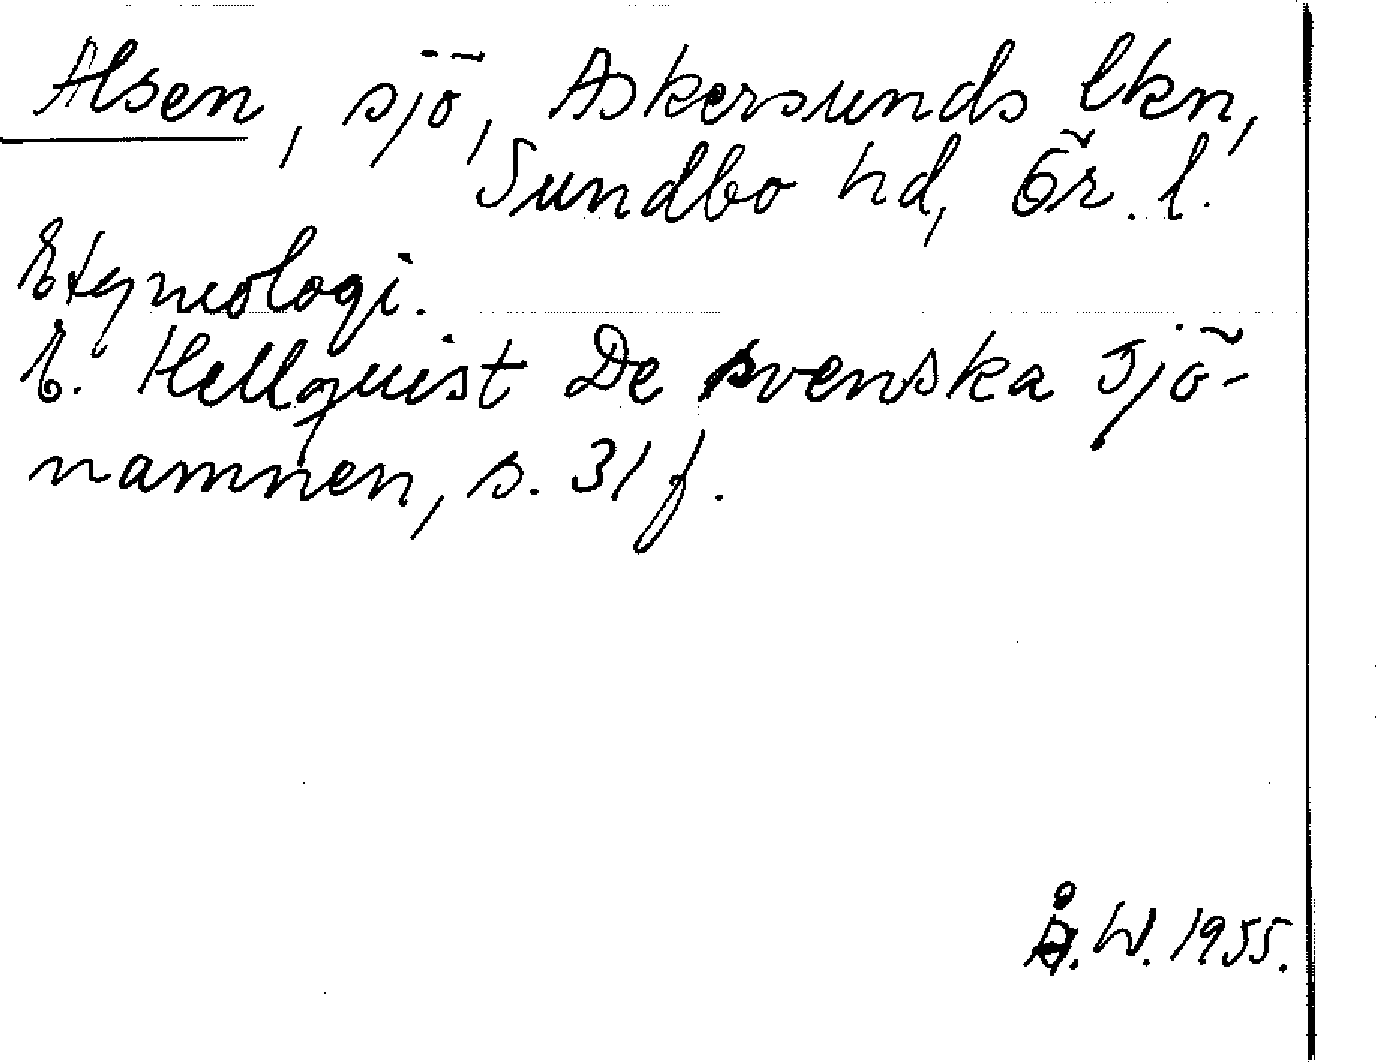 Alsen, sjö, Askersunds lkn,
Sundbo hd, Ör. l.
Etymologi.
E. Hellquist De svenska sjö-
namnen, s. 31 f.
Å. W. 1955.